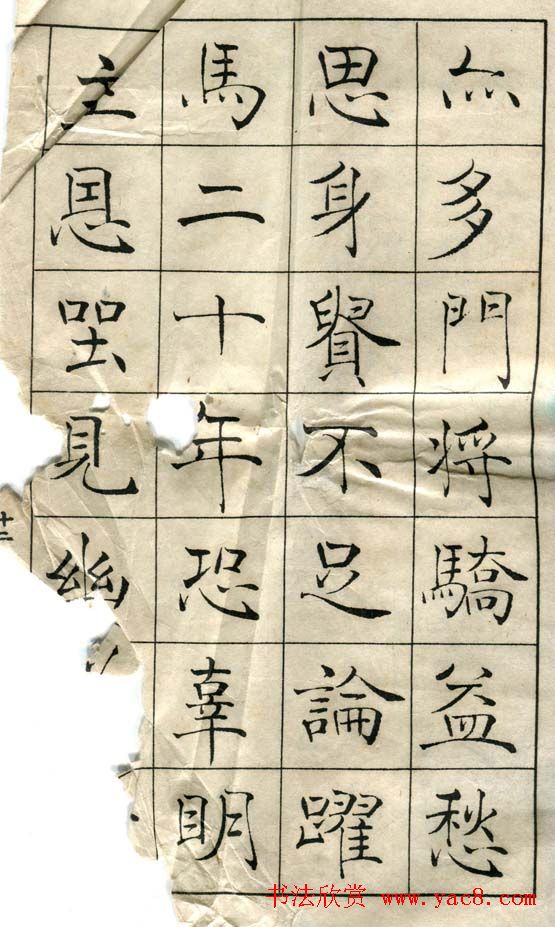 亦多門将驕益愁
思身貴不足論躍
馬二十年恐辜明
主恩坐見幽
十二
书法欣赏 www.yac8.com